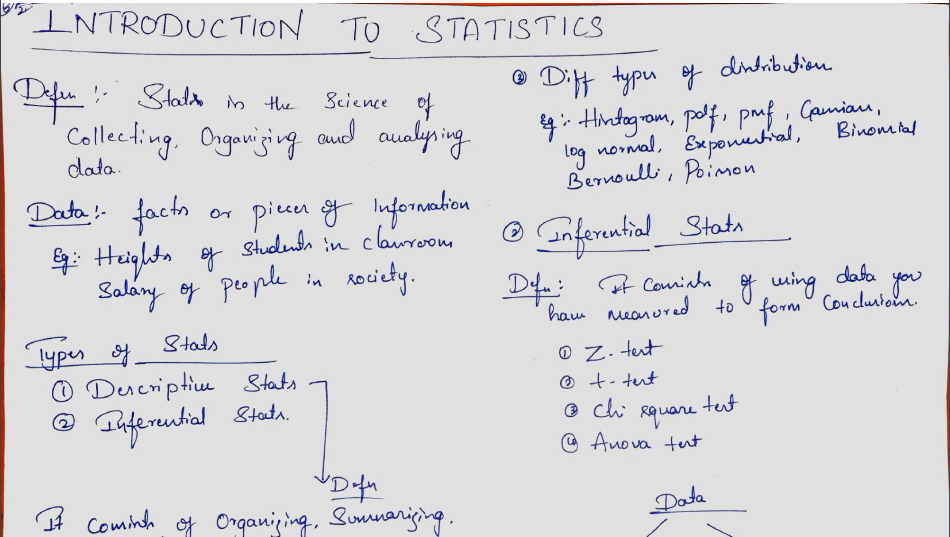 INTRODUCTION TO STATISTICS
Defn :- Stats is the Science of
Collecting, Organizing and analysing
data.
Data :- facts or pieces of Information
Eg:- Heights of Students in classroom
Salary of people in society.
Types of Stats
① Descriptive Stats
② Inferential Stats.
Defn
It consists of Organizing, Summarizing,
③ Diff types of distribution
Eg:- Histogram, pdf, pmf, Gaussian,
log normal, Exponential, Binomial
Bernoulli, Poisson
② Inferential Stats
Defn: It consists of using data you
have measured to form Conclusions.
① Z-test
② t-test
③ Chi square test
④ Anova test
Data